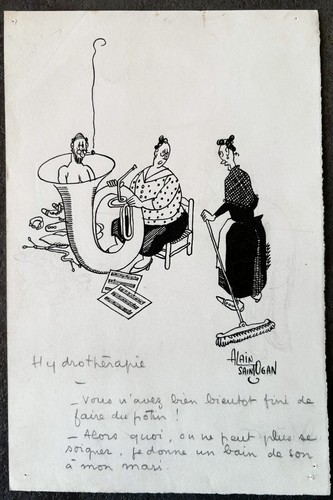 Hydrothérapie
Alain
Saint-Ogan
- Vous n'avez bien bientot fini de
faire du potin !
- Alors quoi, on ne peut plus se
soigner, je donne un bain de son
à mon mari.